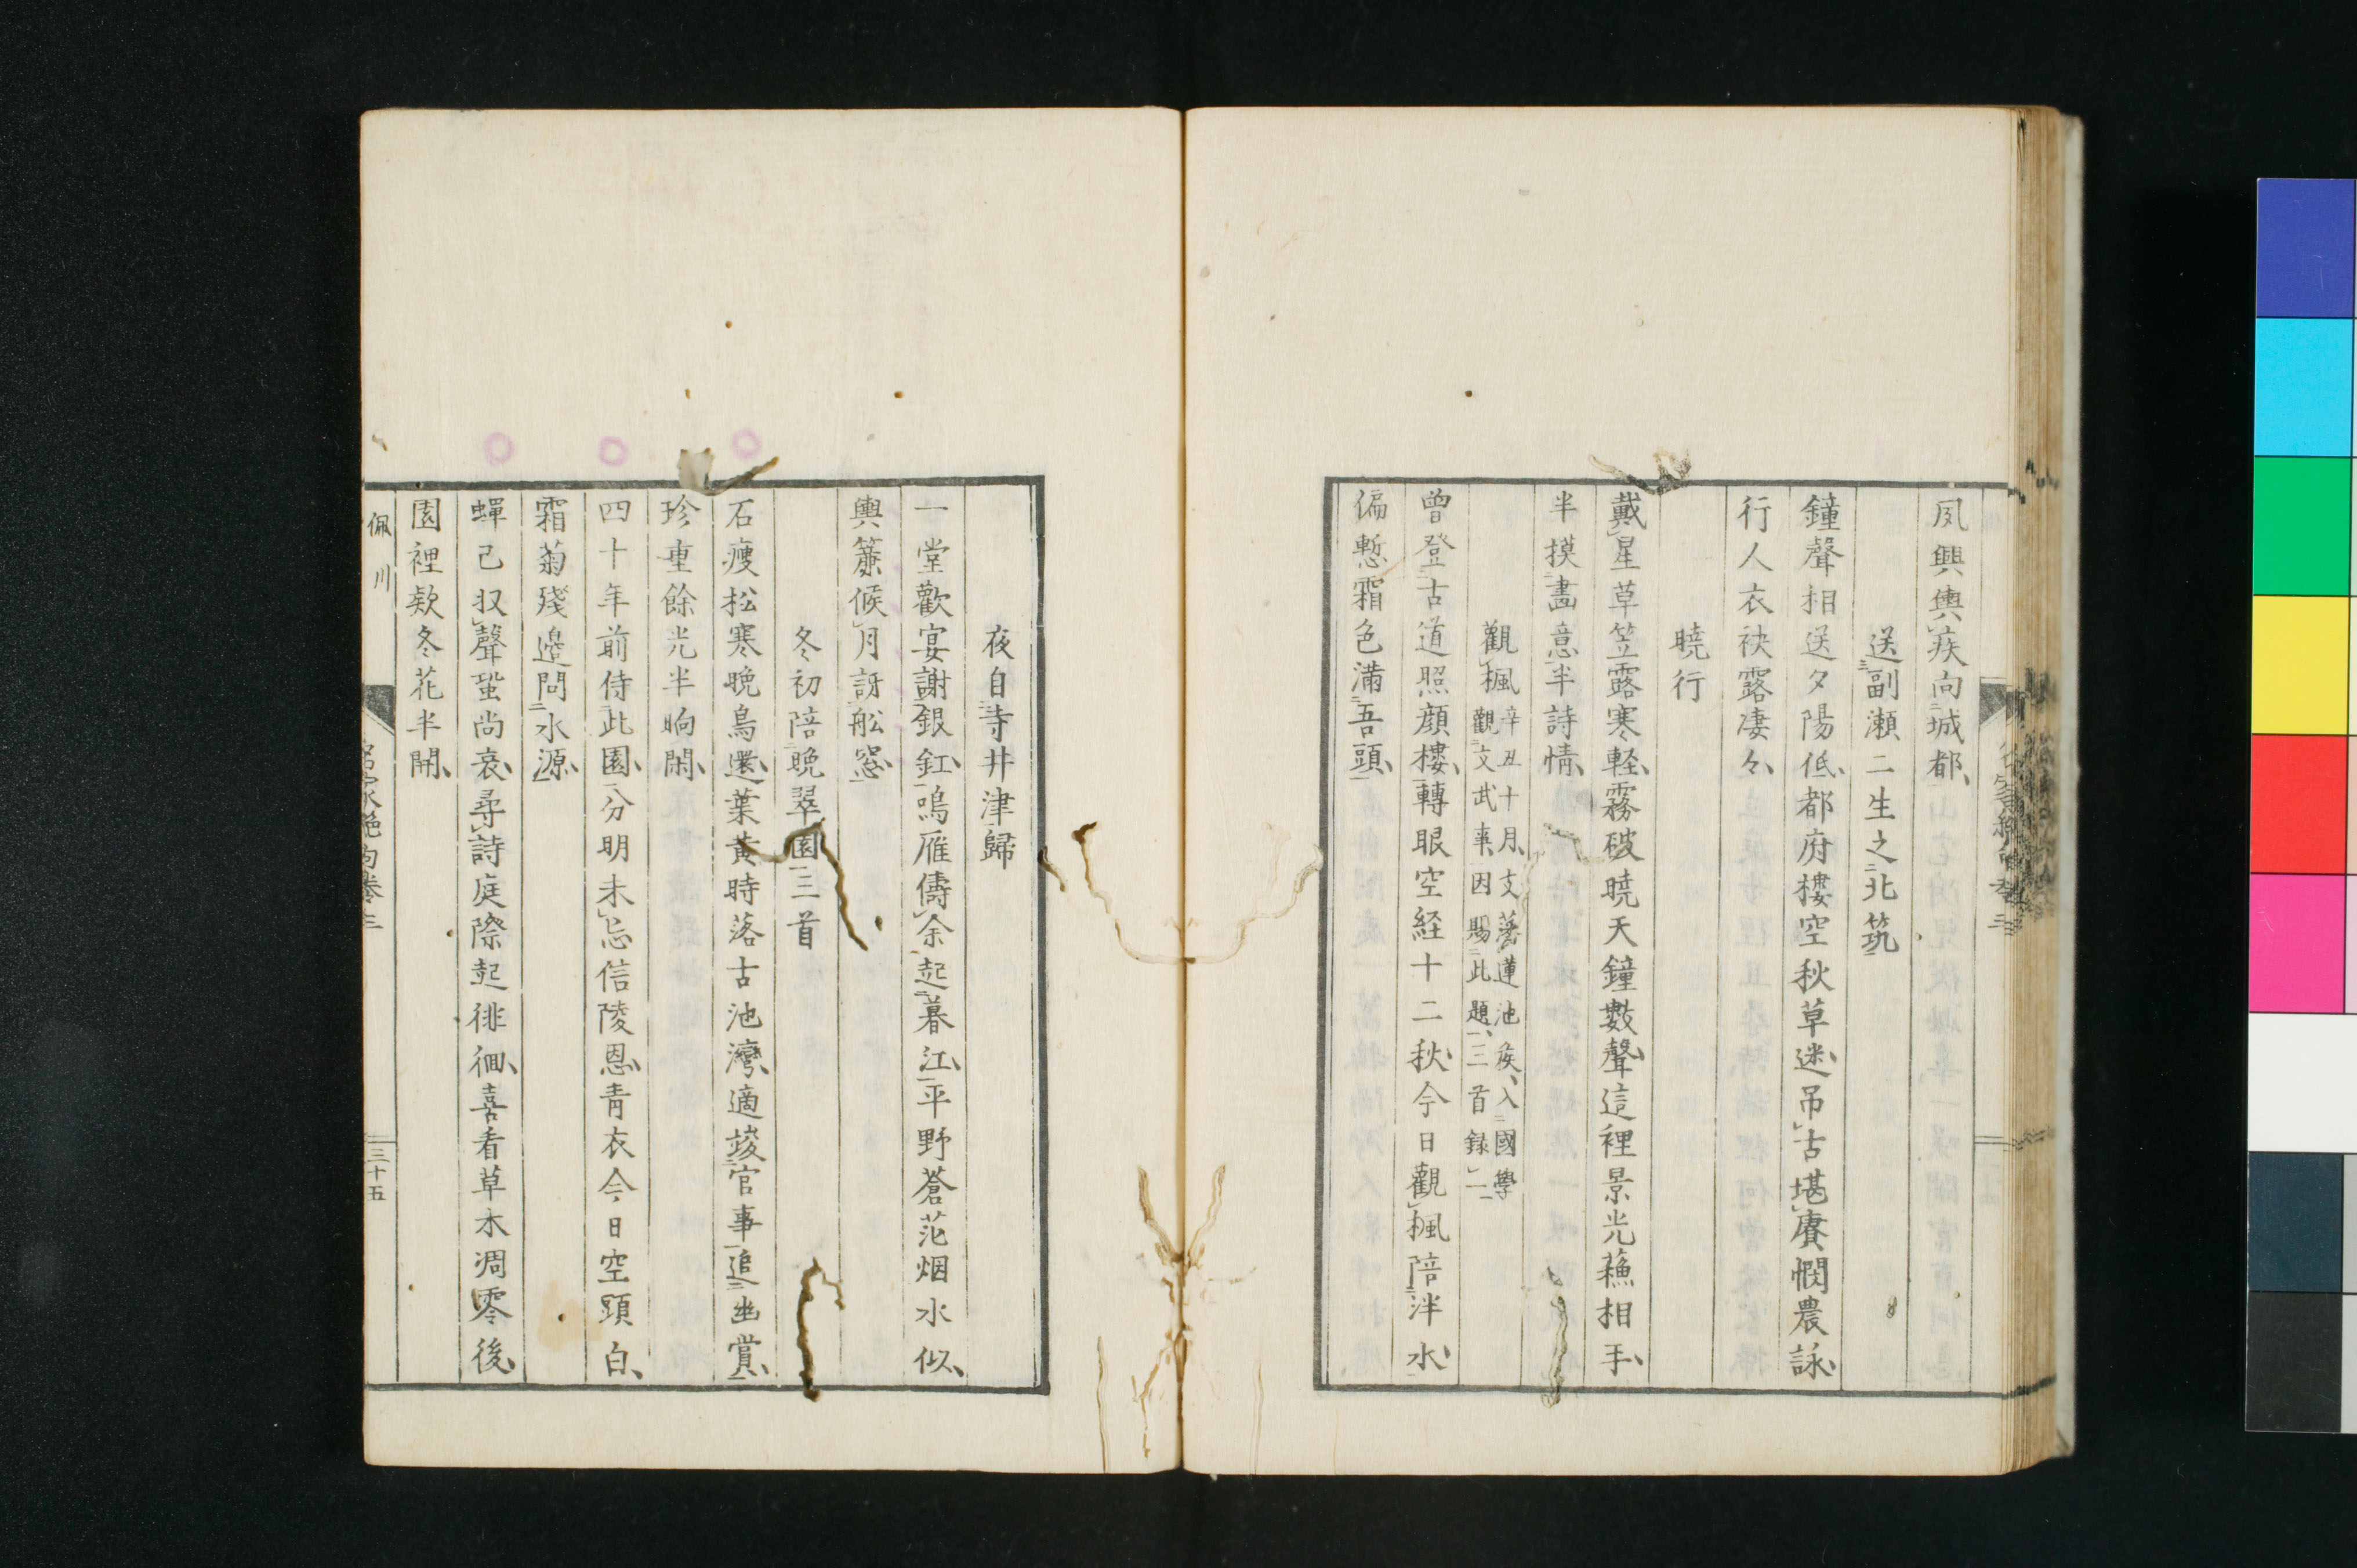 夙興輿疾向城都
送副瀬二生之北筑
鐘聲相送夕陽低都府樓空秋草迷吊古堪賡憫農詠
行人衣袂露凄々
曉行
戴星草笠露寒軽霧破曉天鐘數聲這裡景光蘓相手
半摸畫意半詩情
觀楓
辛丑十月支藩蓮池侯入國學
觀文武事因賜此題三首録二
曽登古道照顔樓轉眼空経十二秋今日觀楓陪泮水
偏慙霜色満吾頭
夜自寺井津歸
一堂歡宴謝銀釭嗚雁儔余起暮江平野蒼茫烟水似
輿簾候月訝舩窓
冬初陪晩翠園三首
石痩松寒晩鳥還葉黄時落古池灣適竣官事追幽賞
珍重餘光半晌閑
四十年前侍此園分明未忘信陵恩青衣今日空頭白
霜菊殘邉問水源
蟬已収聲蛩尚哀尋詩庭際起徘徊喜看草木凋零後
園裡欵冬花半開
佩川
名家絶句巻三
三十五